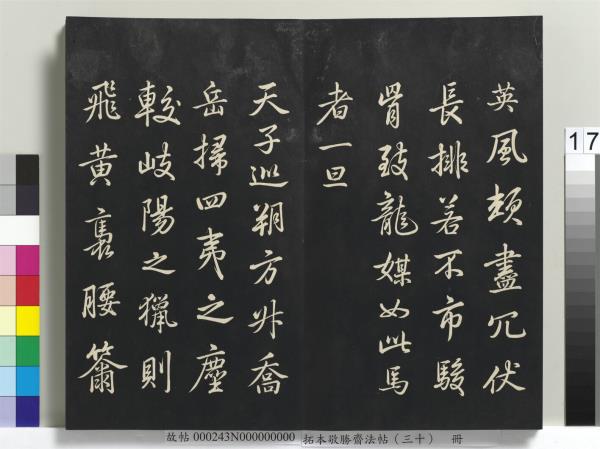 英風頼盡冗伏
長排若不市駿
骨致龍媒如此馬
者一旦
天子巡朔方升喬
岳掃四夷之塵
較岐陽之獵則
飛黃褭腰簫
17
故帖 000243N000000000 拓本敬勝齋法帖（三十） 冊